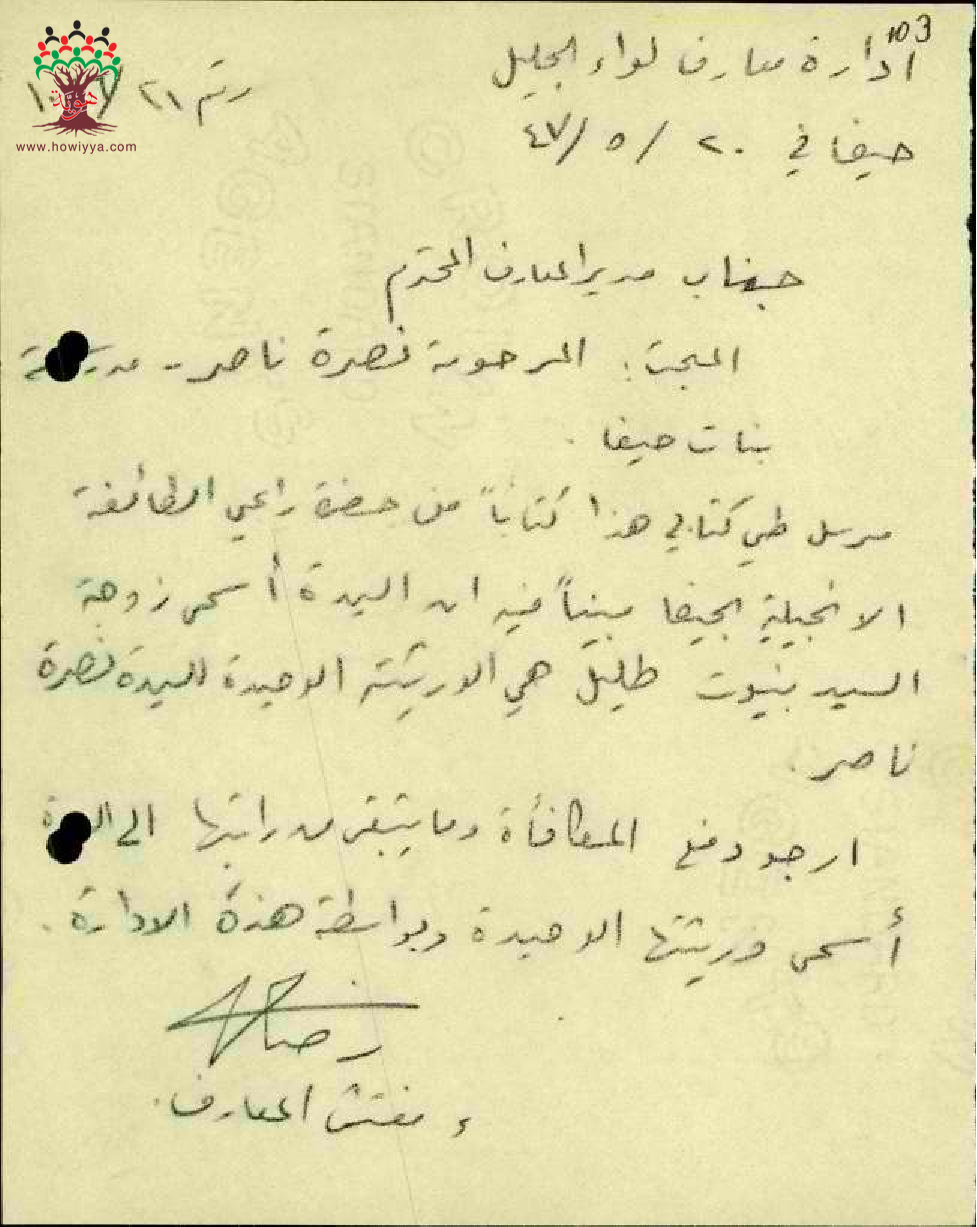 103
ادارة معارف لواء الجليل
رقم ٢١
حيفا في ٢٠ / ٥ / ٤٧
هوية
www.howiyya.com
جناب مدير المعارف المحترم
المبحث : المرحومة نصرة ناصر - مدرسة
بنات حيفا .
مرسل طي كتابي هذا كتاباً من حضرة راعي الطائفة
الانجيلية بحيفا مبيناً فيه ان السيدة أسمى زوجة
السيد بنيوت طليل هي الوريثة الوحيدة للسيدة نصرة
ناصر .
ارجو دفع المكافأة وما يتبقى من راتبها الى السيدة
أسمى وريثتها الوحيدة وبواسطة هذه الادارة .
ء مفتش المعارف .